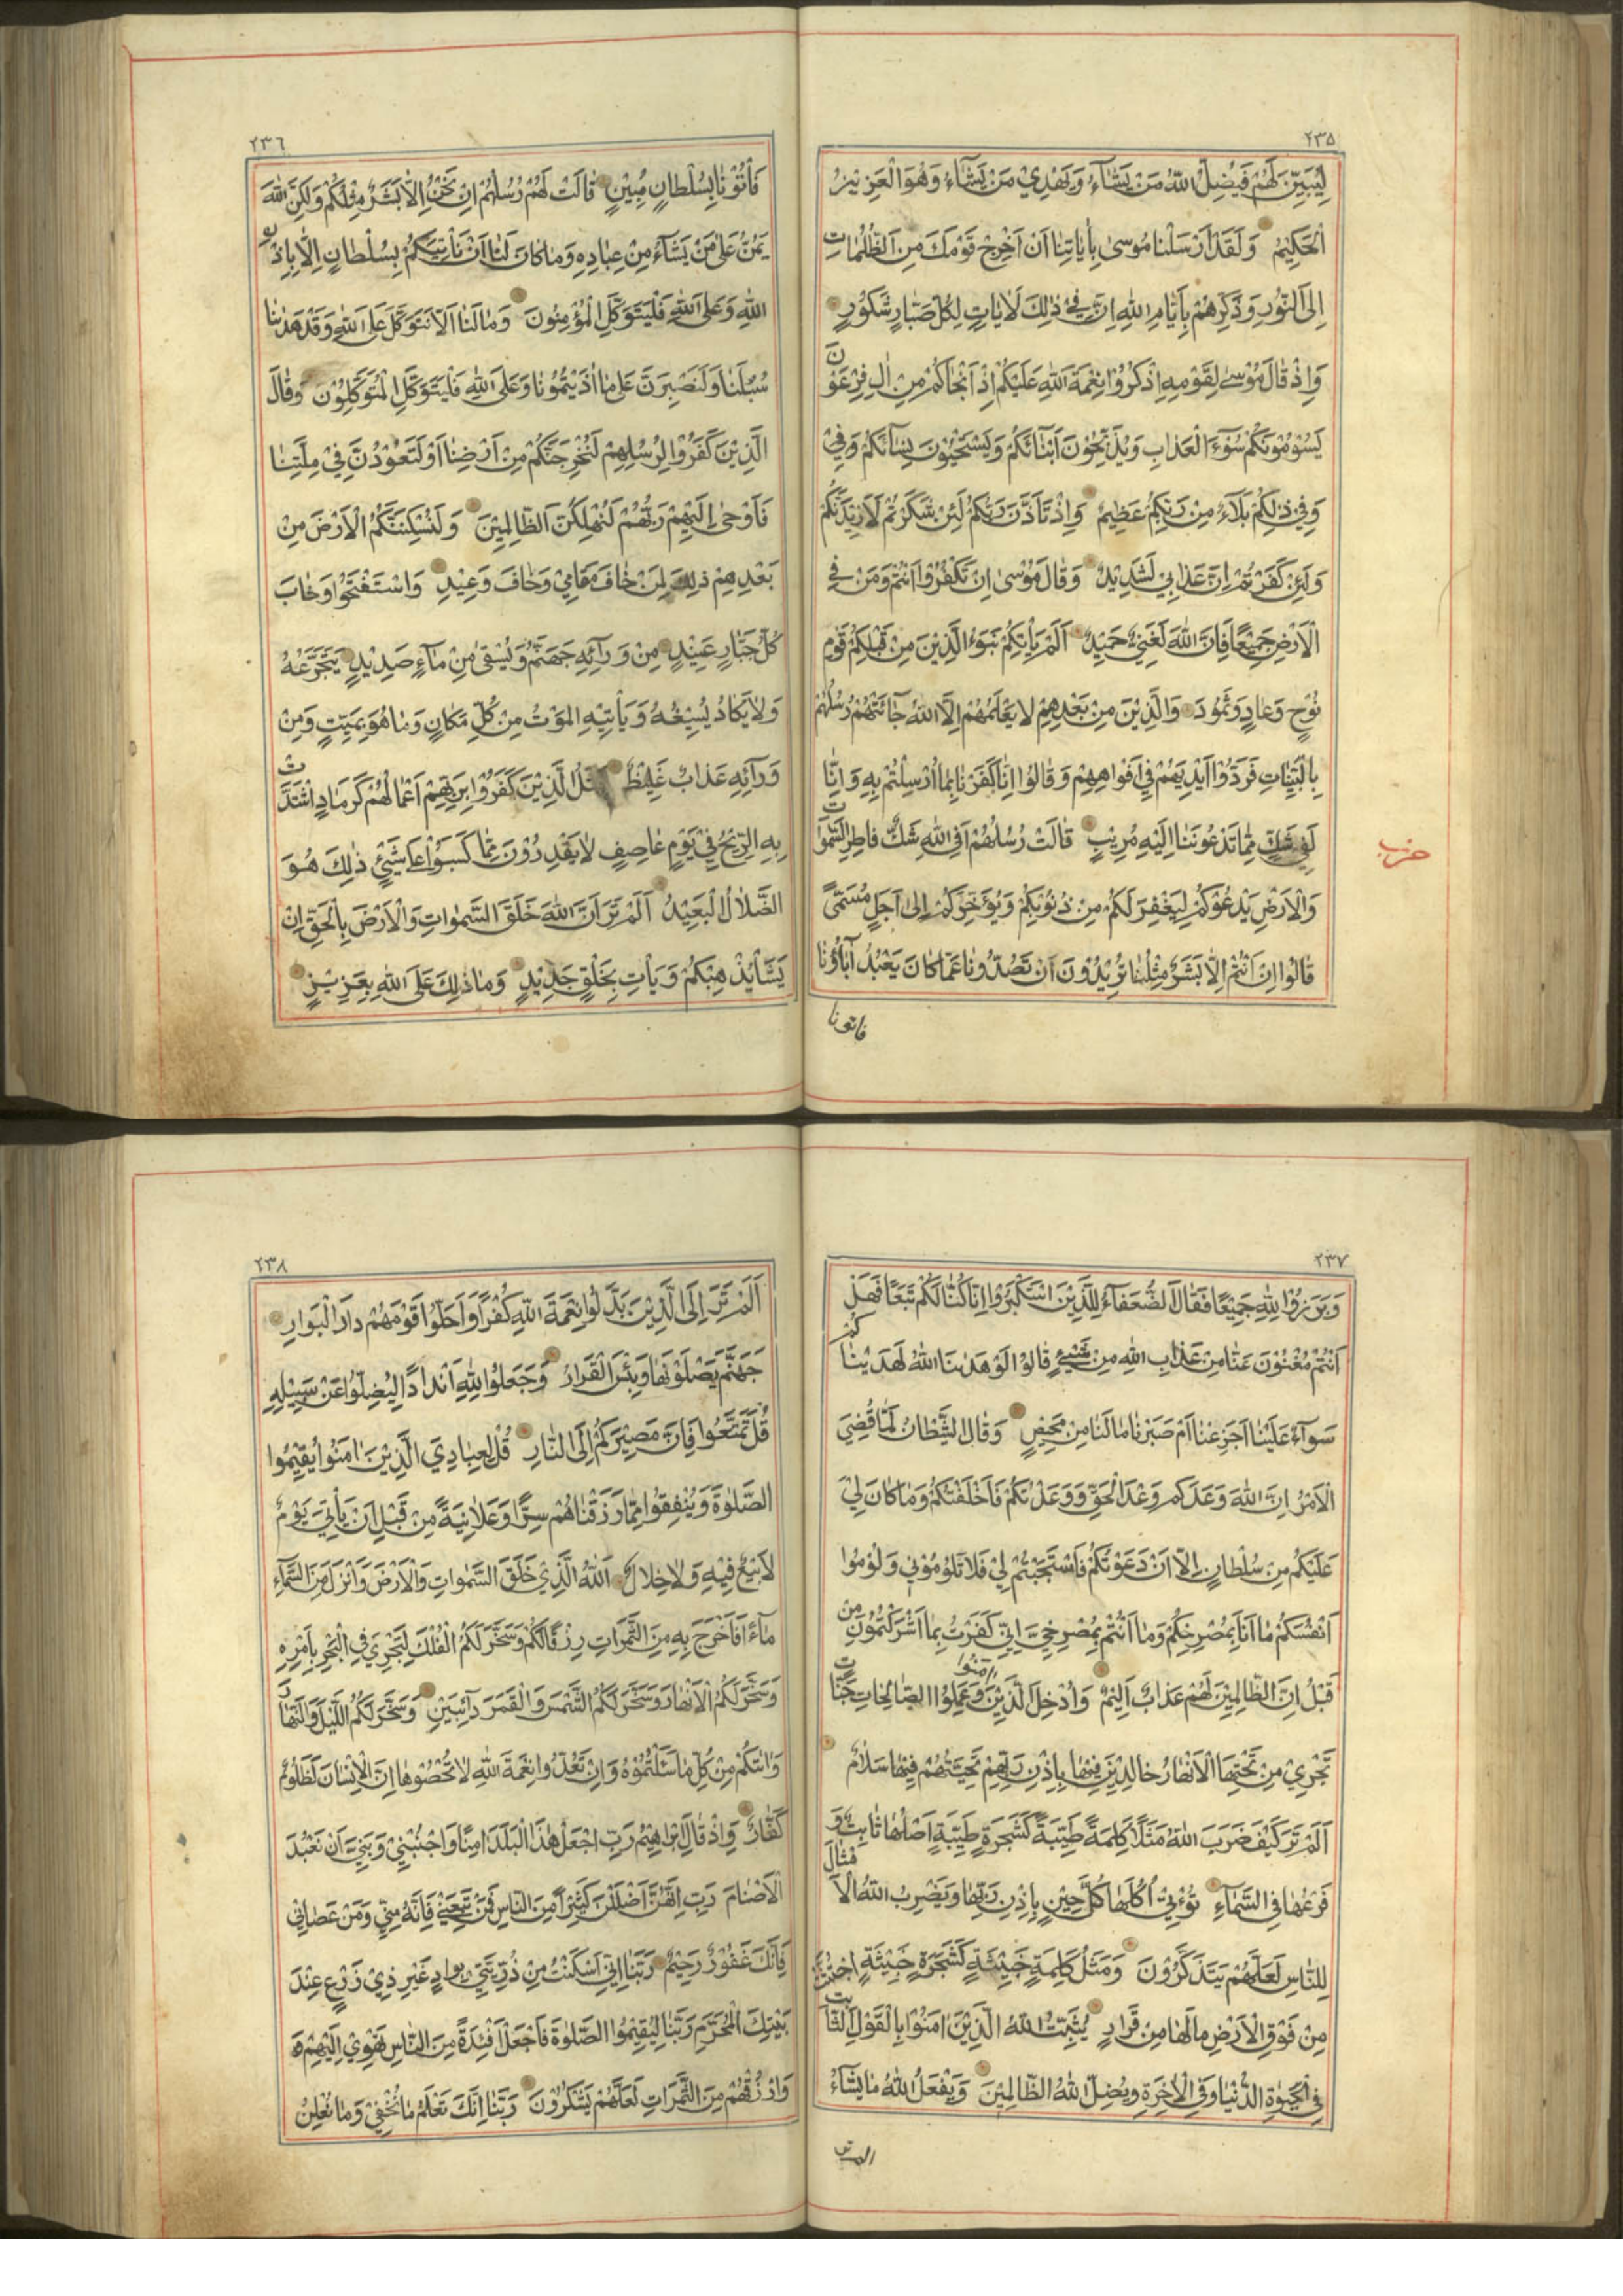 ٢٣٥
لِيُبَيِّنَ لَهُمْ فَيُضِلُّ اللّٰهُ مَنْ يَشَآءُ وَيَهْدِيْ مَنْ يَشَآءُ وَهُوَ الْعَزِيْزُ
الْحَكِيْمُ وَلَقَدْ اَرْسَلْنَا مُوسٰى بِاٰيَاتِنَا اَنْ اَخْرِجْ قَوْمَكَ مِنَ الظُّلُمَاتِ
اِلَى النُّوْرِ وَذَكِّرْهُمْ بِاَيَّامِ اللّٰهِ اِنَّ فِيْ ذٰلِكَ لَاٰيَاتٍ لِكُلِّ صَبَّارٍ شَكُوْرٍ
وَاِذْ قَالَ مُوْسٰى لِقَوْمِهِ اذْكُرُوْا نِعْمَةَ اللّٰهِ عَلَيْكُمْ اِذْ اَنْجَاكُمْ مِنْ اٰلِ فِرْعَوْنَ
يَسُوْمُوْنَكُمْ سُوْءَ الْعَذَابِ وَيُذَبِّحُوْنَ اَبْنَآئَكُمْ وَيَسْتَحْيُوْنَ نِسَآئَكُمْ وَفِيْ
وَفِيْ ذٰلِكُمْ بَلَآءٌ مِنْ رَبِّكُمْ عَظِيْمٌ وَاِذْ تَاَذَّنَ رَبُّكُمْ لَئِنْ شَكَرْتُمْ لَاَزِيْدَنَّكُمْ
وَلَئِنْ كَفَرْتُمْ اِنَّ عَذَابِيْ لَشَدِيْدٌ وَقَالَ مُوْسٰى اِنْ تَكْفُرُوْا اَنْتُمْ وَمَنْ فِي
الْاَرْضِ جَمِيْعًا فَاِنَّ اللّٰهَ لَغَنِيٌّ حَمِيْدٌ اَلَمْ يَاْتِكُمْ نَبَوءُ الَّذِيْنَ مِنْ قَبْلِكُمْ قَوْمِ
نُوْحٍ وَعَادٍ وَثَمُوْدَ وَالَّذِيْنَ مِنْ بَعْدِهِمْ لَا يَعْلَمُهُمْ اِلَّا اللّٰهُ جَآئَتْهُمْ رُسُلُهُمْ
بِالْبَيِّنَاتِ فَرَدُّوْا اَيْدِيَهُمْ فِيْ اَفْوَاهِهِمْ وَقَالُوْا اِنَّا كَفَرْنَا بِمَا اُرْسِلْتُمْ بِهِ وَاِنَّا
لَفِيْ شَكٍّ مِمَّا تَدْعُوْنَنَا اِلَيْهِ مُرِيْبٍ قَالَتْ رُسُلُهُمْ اَفِي اللّٰهِ شَكٌّ فَاطِرِ السَّمٰوَاتِ
وَالْاَرْضِ يَدْعُوْكُمْ لِيَغْفِرَ لَكُمْ مِنْ ذُنُوْبِكُمْ وَيُؤَخِّرَكُمْ اِلٰى اَجَلٍ مُسَمًّى
قَالُوْا اِنْ اَنْتُمْ اِلَّا بَشَرٌ مِثْلُنَا تُرِيْدُوْنَ اَنْ تَصُدُّوْنَا عَمَّا كَانَ يَعْبُدُ اٰبَآؤُنَا
فاتونا
حزب
٢٣٦
فَاْتُوْنَا بِسُلْطَانٍ مُبِيْنٍ قَالَتْ لَهُمْ رُسُلُهُمْ اِنْ نَحْنُ اِلَّا بَشَرٌ مِثْلُكُمْ وَلٰكِنَّ اللّٰهَ
يَمُنُّ عَلٰى مَنْ يَشَآءُ مِنْ عِبَادِهِ وَمَا كَانَ لَنَا اَنْ نَاْتِيَكُمْ بِسُلْطَانٍ اِلَّا بِاِذْنِ
اللّٰهِ وَعَلَى اللّٰهِ فَلْيَتَوَكَّلِ الْمُؤْمِنُونَ وَمَا لَنَا اَلَّا نَتَوَكَّلَ عَلَى اللّٰهِ وَقَدْ هَدٰنَا
سُبُلَنَا وَلَنَصْبِرَنَّ عَلٰى مَا اٰذَيْتُمُوْنَا وَعَلَى اللّٰهِ فَلْيَتَوَكَّلِ الْمُتَوَكِّلُوْنَ وَقَالَ
الَّذِيْنَ كَفَرُوْا لِرُسُلِهِمْ لَنُخْرِجَنَّكُمْ مِنْ اَرْضِنَا اَوْ لَتَعُوْدُنَّ فِيْ مِلَّتِنَا
فَاَوْحٰى اِلَيْهِمْ رَبُّهُمْ لَنُهْلِكَنَّ الظَّالِمِيْنَ وَلَنُسْكِنَنَّكُمُ الْاَرْضَ مِنْ
بَعْدِهِمْ ذٰلِكَ لِمَنْ خَافَ مَقَامِيْ وَخَافَ وَعِيْدِ وَاسْتَفْتَحُوْا وَخَابَ
كُلُّ جَبَّارٍ عَنِيْدٍ مِنْ وَرَآئِهِ جَهَنَّمُ وَيُسْقٰى مِنْ مَآءٍ صَدِيْدٍ يَتَجَرَّعُهُ
وَلَا يَكَادُ يُسِيْغُهُ وَيَاْتِيْهِ الْمَوْتُ مِنْ كُلِّ مَكَانٍ وَمَا هُوَ بِمَيِّتٍ وَمِنْ
وَرَآئِهِ عَذَابٌ غَلِيْظٌ مَثَلُ الَّذِيْنَ كَفَرُوْا بِرَبِّهِمْ اَعْمَالُهُمْ كَرَمَادٍ اشْتَدَّتْ
بِهِ الرِّيْحُ فِيْ يَوْمٍ عَاصِفٍ لَا يَقْدِرُوْنَ مِمَّا كَسَبُوْا عَلٰى شَيْئٍ ذٰلِكَ هُوَ
الضَّلَالُ الْبَعِيْدُ اَلَمْ تَرَ اَنَّ اللّٰهَ خَلَقَ السَّمٰوَاتِ وَالْاَرْضَ بِالْحَقِّ اِنْ
يَشَأْ يُذْهِبْكُمْ وَيَاْتِ بِخَلْقٍ جَدِيْدٍ وَمَا ذٰلِكَ عَلَى اللّٰهِ بِعَزِيْزٍ
٢٣٧
وَبَرَزُوْا لِلّٰهِ جَمِيْعًا فَقَالَ الضُّعَفَآءُ لِلَّذِيْنَ اسْتَكْبَرُوْا اِنَّا كُنَّا لَكُمْ تَبَعًا فَهَلْ
اَنْتُمْ مُغْنُوْنَ عَنَّا مِنْ عَذَابِ اللّٰهِ مِنْ شَيْئٍ قَالُوْا لَوْ هَدٰنَا اللّٰهُ لَهَدَيْنَاكُمْ
سَوَآءٌ عَلَيْنَا اَجَزِعْنَا اَمْ صَبَرْنَا مَا لَنَا مِنْ مَحِيْصٍ وَقَالَ الشَّيْطَانُ لَمَّا قُضِيَ
الْاَمْرُ اِنَّ اللّٰهَ وَعَدَكُمْ وَعْدَ الْحَقِّ وَوَعَدْتُكُمْ فَاَخْلَفْتُكُمْ وَمَا كَانَ لِيَ
عَلَيْكُمْ مِنْ سُلْطَانٍ اِلَّا اَنْ دَعَوْتُكُمْ فَاسْتَجَبْتُمْ لِيْ فَلَا تَلُوْمُوْنِيْ وَلُوْمُوْا
اَنْفُسَكُمْ مَا اَنَا بِمُصْرِخِكُمْ وَمَا اَنْتُمْ بِمُصْرِخِيَّ اِنِّيْ كَفَرْتُ بِمَا اَشْرَكْتُمُوْنِ مِنْ
قَبْلُ اِنَّ الظَّالِمِيْنَ لَهُمْ عَذَابٌ اَلِيْمٌ وَاُدْخِلَ الَّذِيْنَ اٰمَنُوْا وَعَمِلُوا الصَّالِحَاتِ جَنَّاتٍ
تَجْرِيْ مِنْ تَحْتِهَا الْاَنْهَارُ خَالِدِيْنَ فِيْهَا بِاِذْنِ رَبِّهِمْ تَحِيَّتُهُمْ فِيْهَا سَلَامٌ
اَلَمْ تَرَ كَيْفَ ضَرَبَ اللّٰهُ مَثَلًا كَلِمَةً طَيِّبَةً كَشَجَرَةٍ طَيِّبَةٍ اَصْلُهَا ثَابِتٌ وَ
فَرْعُهَا فِي السَّمَآءِ تُؤْتِيْ اُكُلَهَا كُلَّ حِيْنٍ بِاِذْنِ رَبِّهَا وَيَضْرِبُ اللّٰهُ الْاَمْثَالَ
لِلنَّاسِ لَعَلَّهُمْ يَتَذَكَّرُوْنَ وَمَثَلُ كَلِمَةٍ خَبِيْثَةٍ كَشَجَرَةٍ خَبِيْثَةٍ اجْتُثَّتْ
مِنْ فَوْقِ الْاَرْضِ مَا لَهَا مِنْ قَرَارٍ يُثَبِّتُ اللّٰهُ الَّذِيْنَ اٰمَنُوْا بِالْقَوْلِ الثَّابِتِ
فِي الْحَيٰوةِ الدُّنْيَا وَفِي الْاٰخِرَةِ وَيُضِلُّ اللّٰهُ الظَّالِمِيْنَ وَيَفْعَلُ اللّٰهُ مَا يَشَآءُ
الم تر
٢٣٨
اَلَمْ تَرَ اِلَى الَّذِيْنَ بَدَّلُوْا نِعْمَةَ اللّٰهِ كُفْرًا وَاَحَلُّوْا قَوْمَهُمْ دَارَ الْبَوَارِ
جَهَنَّمَ يَصْلَوْنَهَا وَبِئْسَ الْقَرَارُ وَجَعَلُوْا لِلّٰهِ اَنْدَادًا لِيُضِلُّوْا عَنْ سَبِيْلِهِ
قُلْ تَمَتَّعُوْا فَاِنَّ مَصِيْرَكُمْ اِلَى النَّارِ قُلْ لِعِبَادِيَ الَّذِيْنَ اٰمَنُوْا يُقِيْمُوا
الصَّلٰوةَ وَيُنْفِقُوْا مِمَّا رَزَقْنَاهُمْ سِرًّا وَعَلَانِيَةً مِنْ قَبْلِ اَنْ يَاْتِيَ يَوْمٌ
لَا بَيْعٌ فِيْهِ وَلَا خِلَالٌ اَللّٰهُ الَّذِيْ خَلَقَ السَّمٰوَاتِ وَالْاَرْضَ وَاَنْزَلَ مِنَ السَّمَآءِ
مَآءً فَاَخْرَجَ بِهِ مِنَ الثَّمَرَاتِ رِزْقًا لَكُمْ وَسَخَّرَ لَكُمُ الْفُلْكَ لِتَجْرِيَ فِي الْبَحْرِ بِاَمْرِهِ
وَسَخَّرَ لَكُمُ الْاَنْهَارَ وَسَخَّرَ لَكُمُ الشَّمْسَ وَالْقَمَرَ دَآئِبَيْنِ وَسَخَّرَ لَكُمُ اللَّيْلَ وَالنَّهَارَ
وَاٰتٰكُمْ مِنْ كُلِّ مَا سَئَلْتُمُوْهُ وَاِنْ تَعُدُّوْا نِعْمَةَ اللّٰهِ لَا تُحْصُوْهَا اِنَّ الْاِنْسَانَ لَظَلُوْمٌ
كَفَّارٌ وَاِذْ قَالَ اِبْرَاهِيْمُ رَبِّ اجْعَلْ هٰذَا الْبَلَدَ اٰمِنًا وَاجْنُبْنِيْ وَبَنِيَّ اَنْ نَعْبُدَ
الْاَصْنَامَ رَبِّ اِنَّهُنَّ اَضْلَلْنَ كَثِيْرًا مِنَ النَّاسِ فَمَنْ تَبِعَنِيْ فَاِنَّهُ مِنِّيْ وَمَنْ عَصَانِيْ
فَاِنَّكَ غَفُوْرٌ رَحِيْمٌ رَبَّنَا اِنِّيْ اَسْكَنْتُ مِنْ ذُرِّيَّتِيْ بِوَادٍ غَيْرِ ذِيْ زَرْعٍ عِنْدَ
بَيْتِكَ الْمُحَرَّمِ رَبَّنَا لِيُقِيْمُوا الصَّلٰوةَ فَاجْعَلْ اَفْئِدَةً مِنَ النَّاسِ تَهْوِيْ اِلَيْهِمْ
وَارْزُقْهُمْ مِنَ الثَّمَرَاتِ لَعَلَّهُمْ يَشْكُرُوْنَ رَبَّنَا اِنَّكَ تَعْلَمُ مَا نُخْفِيْ وَمَا نُعْلِنُ